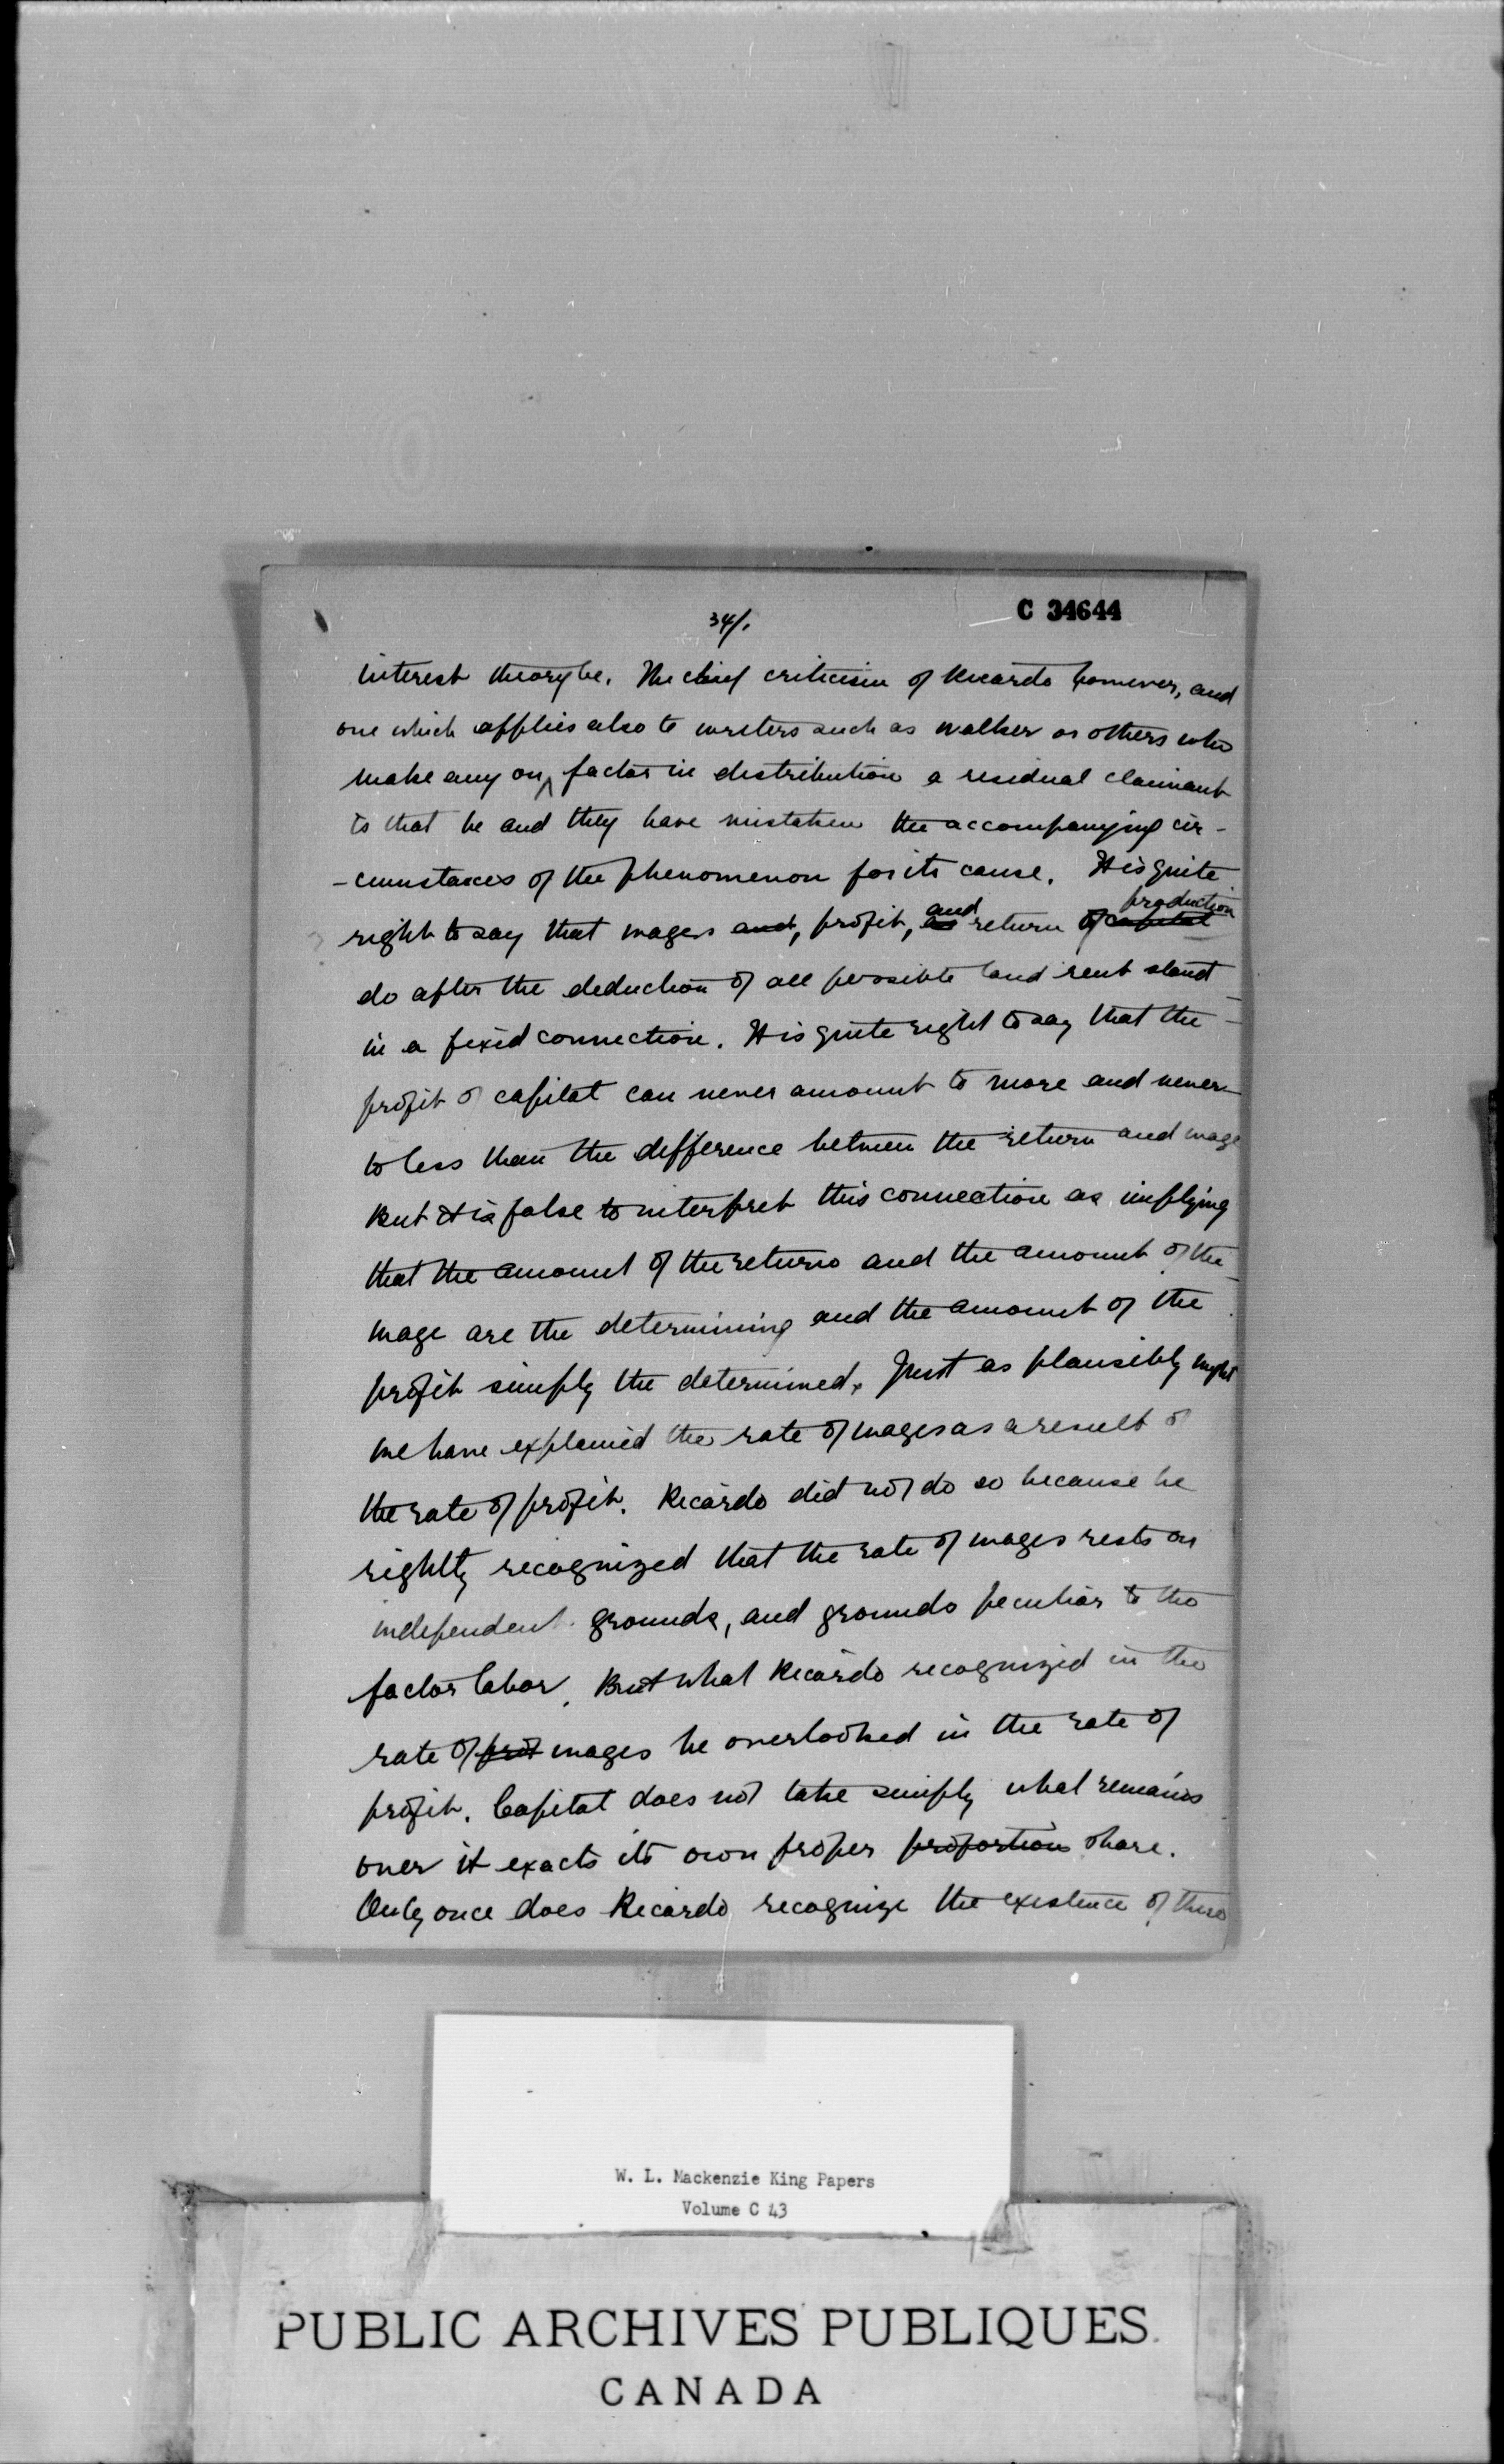 34/.
C 34644
interest theory be. The chief criticism of Ricardo however, and
one which applies also to writers such as Walker or others who
make any one factor in distribution a residual claimant
is that he and they have mistaken the accompanying cir-
-cumstances of the phenomenon for its cause. It is quite
right to say that wages and, profit, as and return of capital production
do after the deduction of all possible land rent stand
in a fixed connection. It is quite right to say that the
profit of capital can never amount to more and never
to less than the difference between the return and wage
But it is false to interpret this connection as implying
that the amount of the returns and the amount of the
wage are the determining and the amount of the
profit simply the determined. Just as plausibly might
we have explained the rate of wages as a result of
the rate of profit. Ricardo did not do so because he
rightly recognized that the rate of wages rests on
independent grounds, and grounds peculiar to the
factor labor. But what Ricardo recognized in the
rate of prof wages he overlooked in the rate of
profit. Capital does not take simply what remains
over it exacts its own proper proportion share.
Only once does Ricardo recognize the existence of these
W. L. Mackenzie King Papers
Volume C 43
PUBLIC ARCHIVES PUBLIQUES
CANADA